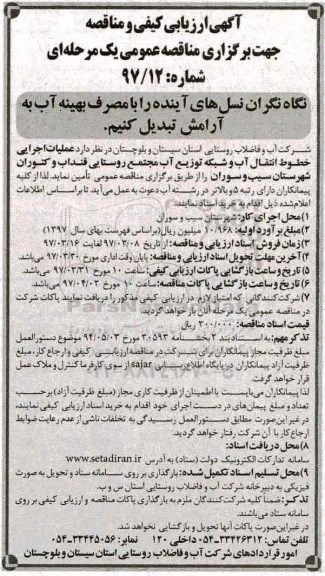 آگهی ارزیابی کیفی و مناقصه
جهت برگزاری مناقصه عمومی یک مرحله‌ای
شماره: ۹۷/۱۲
نگاه نگران نسل‌های آینده را با مصرف بهینه آب به
آرامش تبدیل کنیم.
شرکت آب و فاضلاب روستایی استان سیستان و بلوچستان در نظر دارد عملیات اجرایی
خطوط انتقال آب و شبکه توزیع آب مجتمع روستایی قنداب و کنوران
شهرستان سیب و سوران را از طریق برگزاری مناقصه عمومی تأمین نماید. لذا از کلیه
پیمانکاران دارای رتبه ۵ و بالاتر در رشته آب دعوت به عمل می‌آید تا براساس اطلاعات
اعلام شده ذیل اقدام به خرید اسناد نمایند:
۱) محل اجرای کار: شهرستان سیب و سوران
۲) مبلغ برآورد اولیه: ۱۰/۹۶۸ میلیون ریال (براساس فهرست بهای سال ۱۳۹۷)
۳) زمان فروش اسناد ارزیابی و مناقصه: از تاریخ ۹۷/۰۳/۰۸ لغایت ۹۷/۰۳/۱۶
۴) آخرین مهلت تحویل اسناد ارزیابی و مناقصه: پایان وقت اداری مورخ ۹۷/۰۳/۳۰ می‌باشد.
۵) تاریخ و ساعت بازگشایی پاکات ارزیابی کیفی: ساعت ۱۰ مورخ ۹۷/۰۳/۳۱ می‌باشد.
۶) تاریخ و ساعت بازگشایی پاکات مناقصه: ساعت ۱۰ مورخ ۹۷/۰۴/۰۲ می‌باشد.
۷) شرکت‌کنندگانی که امتیاز لازم در ارزیابی کیفی مذکور را دریافت نمایند پاکات شرکت
در مناقصه عمومی یک مرحله آنان باز خواهد گردید.
قیمت اسناد مناقصه: ۲۰۰/۰۰۰ ریال
تذکر مهم: به استناد بند ۲ بخشنامه ۳۰۵۹۳ مورخ ۹۴/۰۵/۰۳ موضوع دستورالعمل
مبلغ ظرفیت مجاز پیمانکاران برای شرکت در مناقصه ارزیابی کیفی و ارجاع کار، مبلغ
ظرفیت آزاد پیمانکاران در پایگاه اطلاع‌رسانی sajar از سوی کارفرما کنترل و ملاک عمل
قرار خواهد گرفت.
لذا پیمانکاران می‌بایست با اطمینان از ظرفیت کاری مجاز (مبلغ ظرفیت آزاد) برحسب
تعداد و مبلغ پیمان‌های در دست اجرای خود اقدام به خرید اسناد ارزیابی کیفی نمایند،
در غیر این صورت مطابق دستورالعمل رسیدگی به تخلفات ناشی از عدم رعایت ضوابط
ارجاع کار با آن شرکت رفتار خواهد گردید.
۸) محل دریافت اسناد:
سامانه تدارکات الکترونیک دولت (ستاد) به آدرس www.setadiran.ir
۹) محل تسلیم اسناد تکمیل شده: بارگذاری بر روی سامانه ستاد و تحویل به صورت
فیزیکی به دبیرخانه شرکت آب و فاضلاب روستایی استان س و ب.
تذکر: ضمنا کلیه شرکت‌کنندگان ملزم به بارگذاری پاکات مناقصه و ارزیابی کیفی بر روی
سامانه ستاد می‌باشند.
در غیر این صورت پاکات آنها تحویل و بازگشایی نخواهد شد.
تلفن تماس: ۳۳۴۲۶۳۱۲-۰۵۴ داخلی ۱۲۰ نمابر: ۳۳۴۴۵۰۵۶-۰۵۴
امور قراردادهای شرکت آب و فاضلاب روستایی استان سیستان و بلوچستان